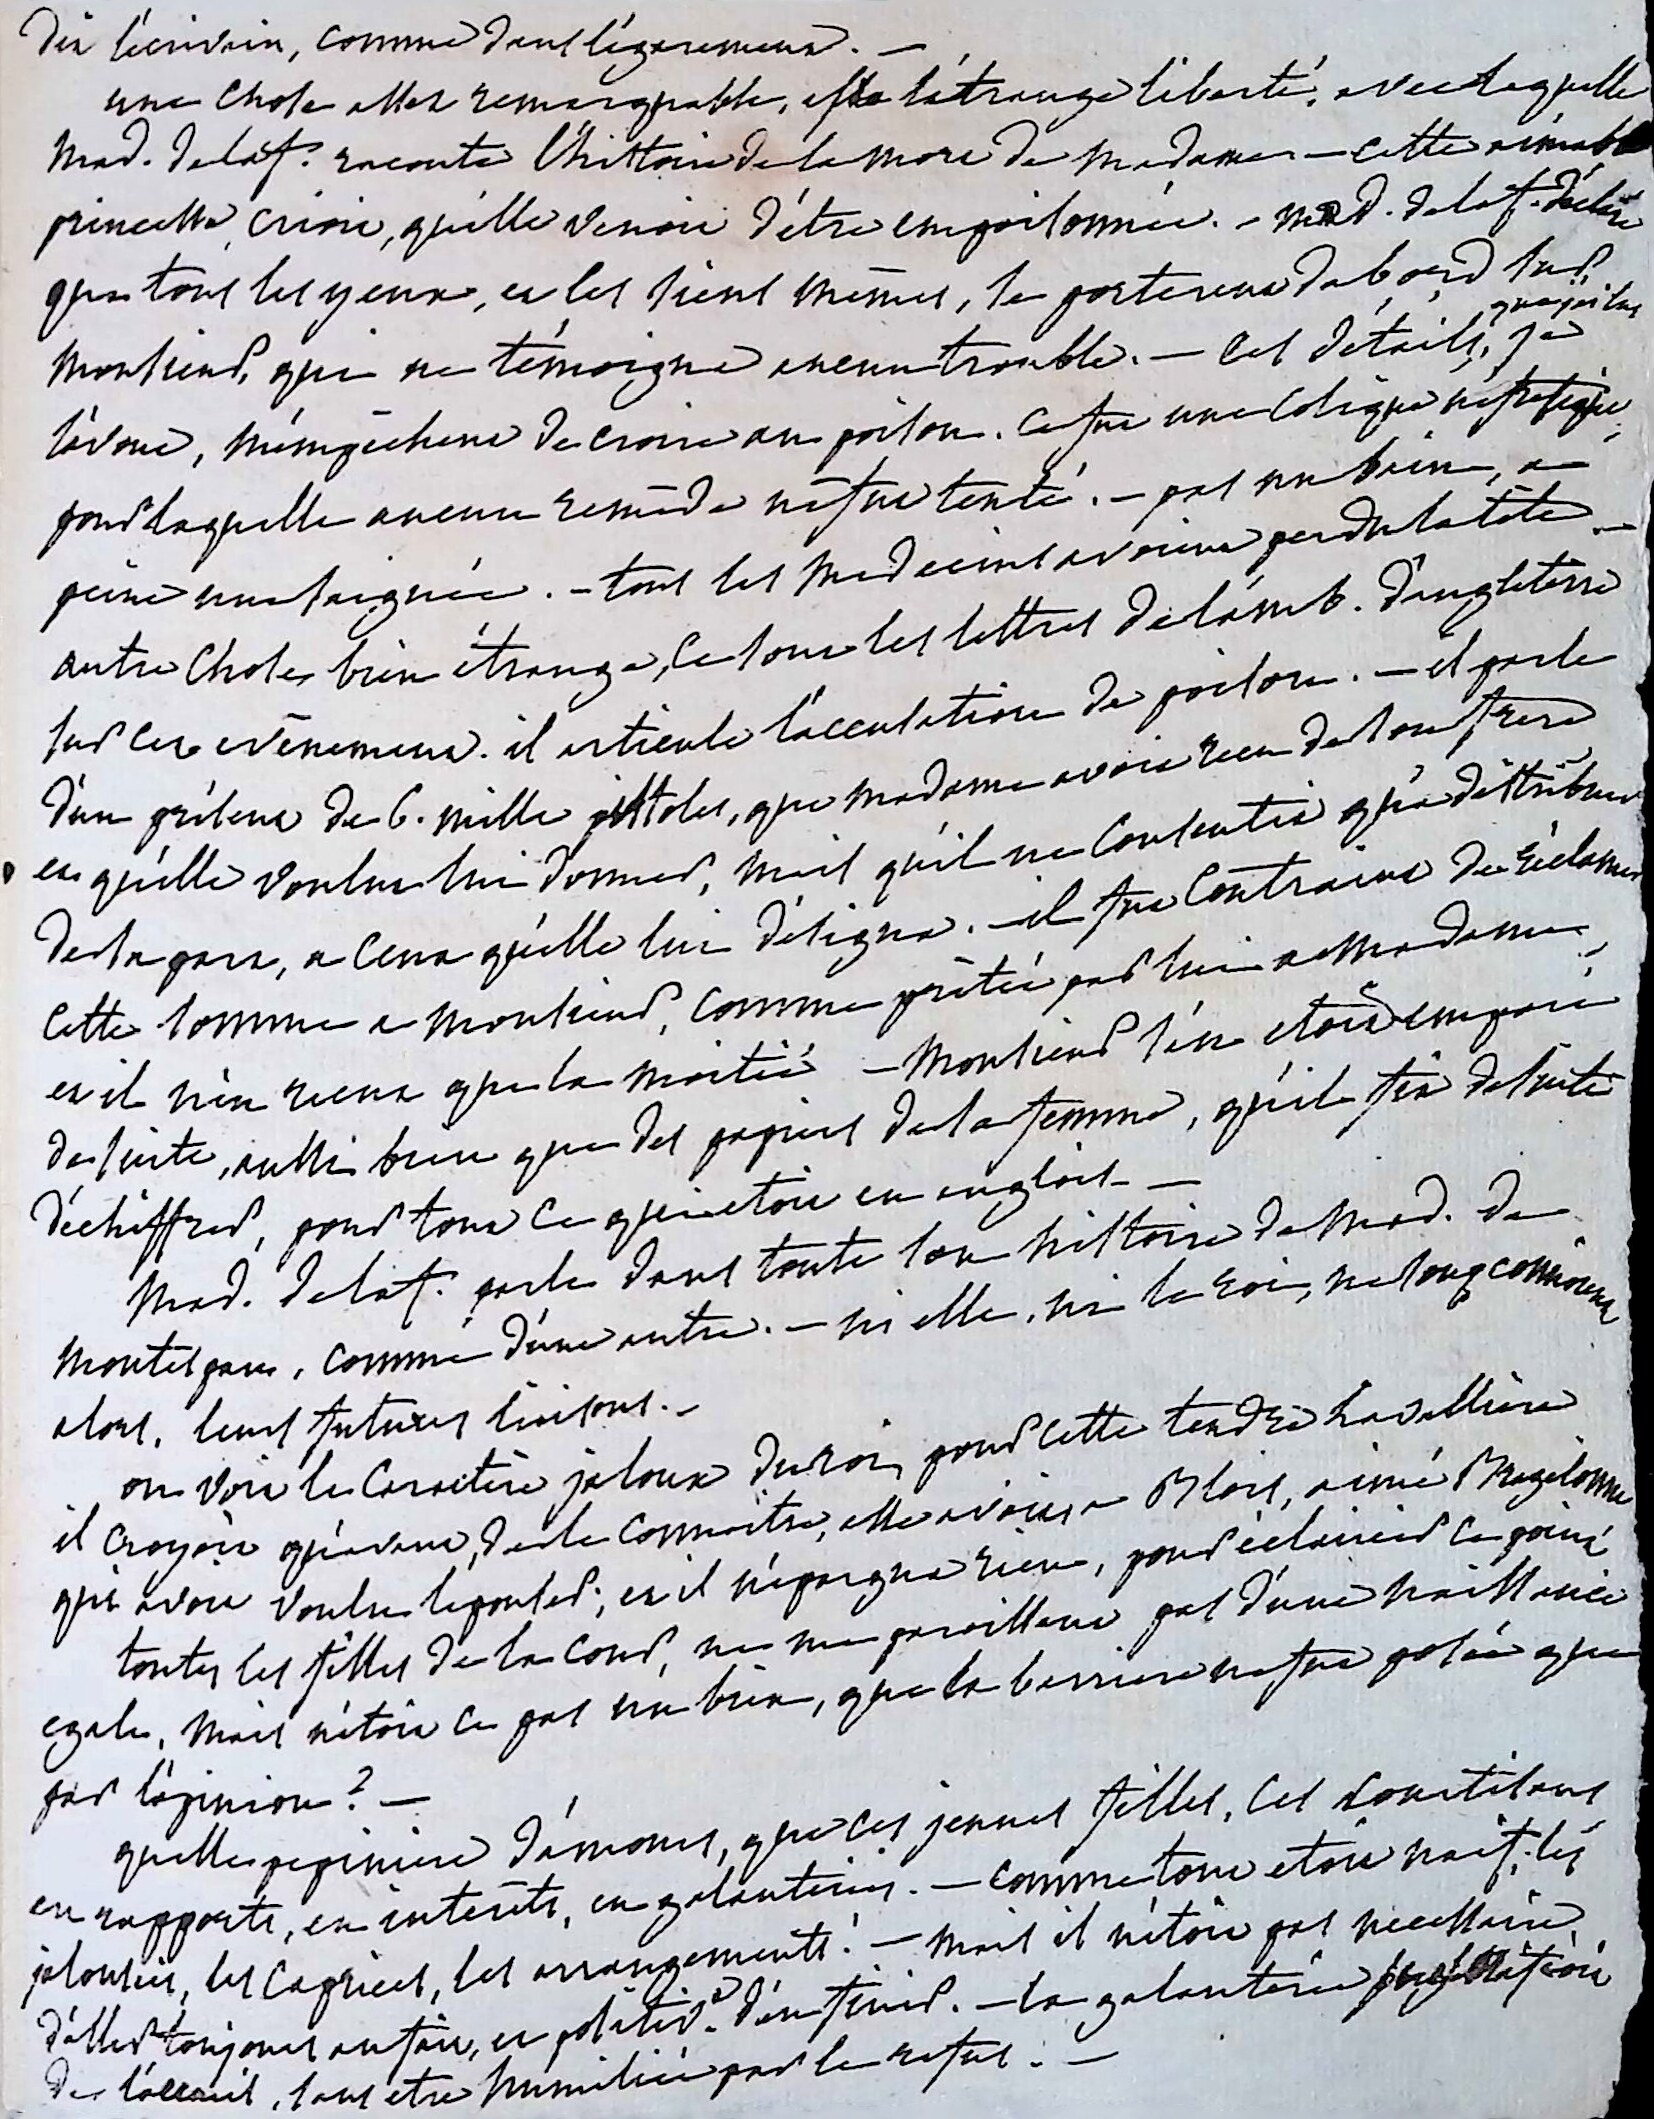 dit l'écrivain, comme dans l'égarement. —
une chose assez remarquable, est l'étrange liberté, avec laquelle
Mad. de laf. raconte l'histoire de la mort de Madame — cette aimable
princesse, crioit, qu'elle venoit d'être empoisonnée. — Mad. de laf. déclare
que tous les yeux, et les siens mêmes, se porterent d'abord sur
Monsieur, qui ne témoigna aucun trouble. — ces détails, que j'ai lus, je
l'avoue, m'empêchent de croire au poison. ce fut une colique néfrétique,
pour laquelle aucun remède ne fut tenté. — pas un bain, a
peine une saignée. — tous les medecins avoient perdu la tête —
autre chose bien étrange, ce sont les lettres de l'amb. d'angleterre
sur cet evênement. il articule l'accusation de poison. — il parle
d'un présent de 6. mille pistoles, que Madame avoit reçu de son frere
et qu'elle voulut lui donner, mais qu'il ne consentit qu'a distribuer
de sa part, a ceux qu'elle lui désigna. — il fut contraint de réclamer
cette somme a Monsieur, comme prêtée par lui a Madame,
et il n'en reçut que la moitié — Monsieur s'en etoit emparé
de suite, aussi bien que des papiers de sa femme, qu'il fit de suite
déchiffrer, pour tout ce qui etoit en anglois —
Mad. de laf. parle dans toute son histoire de Mad. de
Montespan, comme d'une autre. — ni elle, ni le roi, ne soupçonnoient
alors, leurs futures liaisons. —
on voit le caractère jaloux du roi, pour cette tendre Lavallière
il croyoit qu'avant, de le connoître, elle avoit a Blois, aimé Bragelonne
qui avoit voulu l'épouser; et il n'épargna rien, pour éclaircir ce point
toutes les filles de la cour, ne me paroissent pas d'une naissance
egale, mais n'étoit ce pas un bien, que la barriere ne fut posée que
par l'opinion? —
quelle pepiniere d'amours, que ces jeunes filles, ces courtisans
en rapports, en intérêts, en galanteries. — comme tout etoit naïf, les
jalousies, les caprices, les arrangements! — mais il n'étoit pas necessaire
d'aller toujours au fait, et d'en finir. — la galanterie
de l'accueil, sans etre humiliée par le refus. —